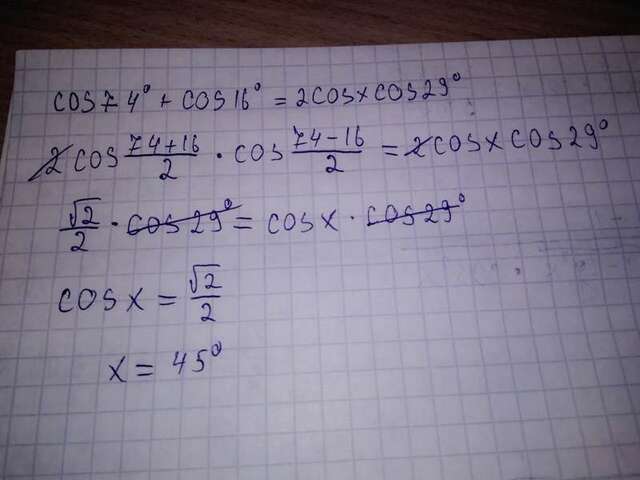 cos74° + cos16° = 2cosxcos29°
2cos (74+16)/2 · cos (74-16)/2 = 2cosxcos29°
√2/2 · cos29° = cosx · cos29°
cosx = √2/2
x = 45°